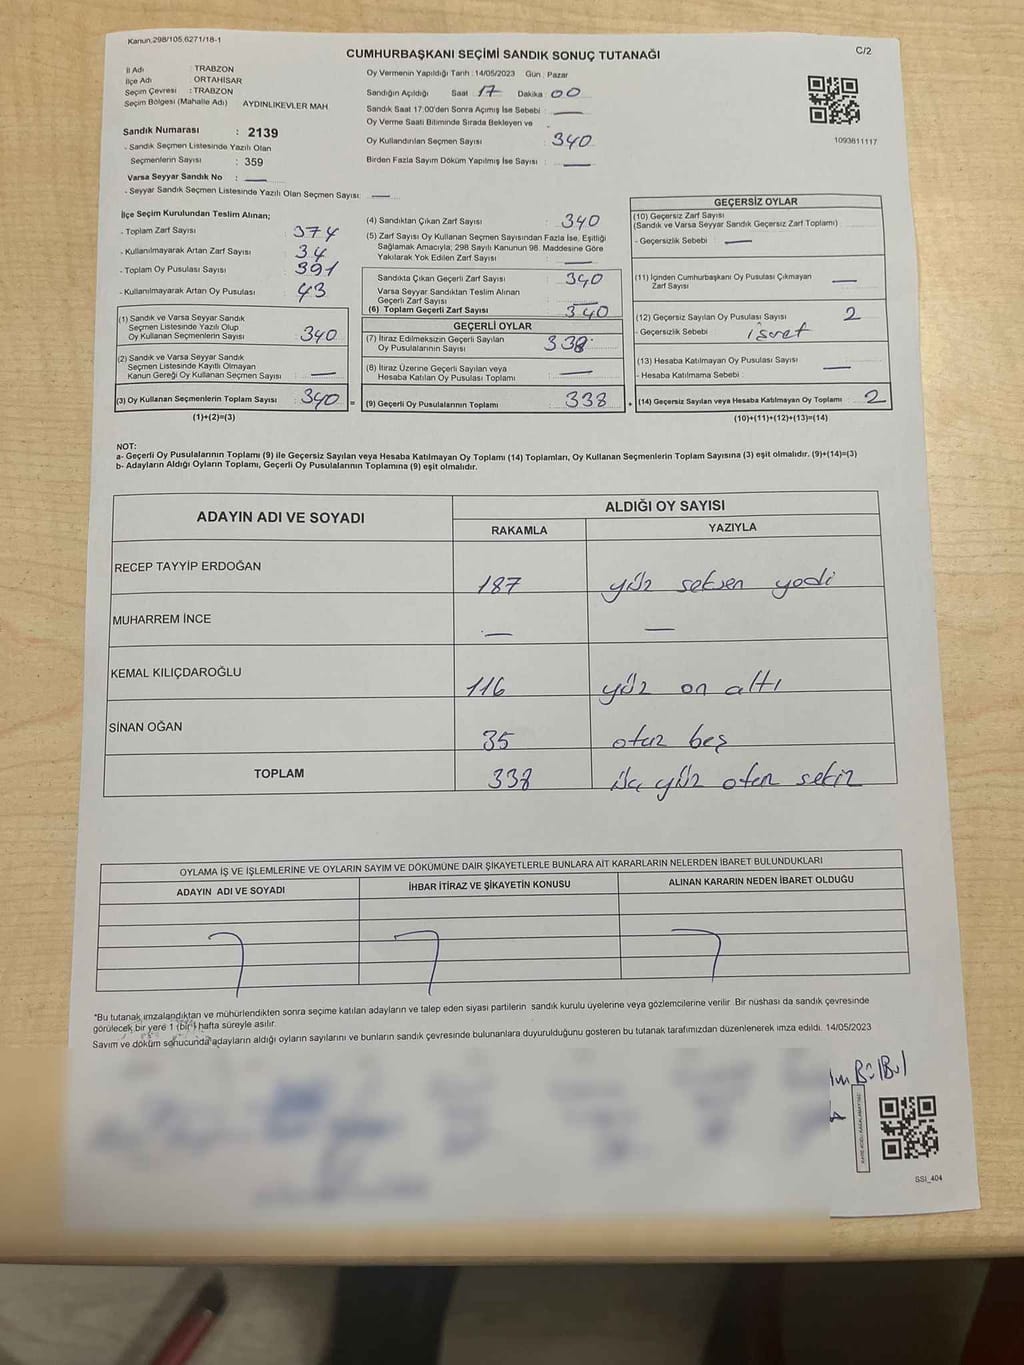 Kanun.298/105,6271/18-1
CUMHURBAŞKANI SEÇİMİ SANDIK SONUÇ TUTANAĞI
C/2
İl Adı : TRABZON
İlçe Adı : ORTAHİSAR
Seçim Çevresi : TRABZON
Seçim Bölgesi (Mahalle Adı) AYDINLIKEVLER MAH.
Sandık Numarası : 2139
- Sandık Seçmen Listesinde Yazılı Olan
Seçmenlerin Sayısı : 359
Varsa Seyyar Sandık No : —
- Seyyar Sandık Seçmen Listesinde Yazılı Olan Seçmen Sayısı: —
Oy Vermenin Yapıldığı Tarih : 14/05/2023 Gün : Pazar
Sandığın Açıldığı Saat 17 Dakika 00
Sandık Saat 17:00'den Sonra Açımış İse Sebebi : —
Oy Verme Saati Bitiminde Sırada Bekleyen ve
Oy Kullandırılan Seçmen Sayısı : 340
Birden Fazla Sayım Döküm Yapılmış İse Sayısı : —
1093811117
İlçe Seçim Kurulundan Teslim Alınan;
- Toplam Zarf Sayısı : 374
- Kullanılmayarak Artan Zarf Sayısı : 34
- Toplam Oy Pusulası Sayısı : 391
- Kullanılmayarak Artan Oy Pusulası : 43
(1) Sandık ve Varsa Seyyar Sandık
Seçmen Listesinde Yazılı Olup
Oy Kullanan Seçmenlerin Sayısı : 340
(2) Sandık ve Varsa Seyyar Sandık
Seçmen Listesinde Kayıtlı Olmayan
Kanun Gereği Oy Kullanan Seçmen Sayısı : —
(3) Oy Kullanan Seçmenlerin Toplam Sayısı : 340 =
(1)+(2)=(3)
(4) Sandıktan Çıkan Zarf Sayısı : 340
(5) Zarf Sayısı Oy Kullanan Seçmen Sayısından Fazla İse, Eşitliği
Sağlamak Amacıyla; 298 Sayılı Kanunun 98. Maddesine Göre
Yakılarak Yok Edilen Zarf Sayısı : —
Sandıkta Çıkan Geçerli Zarf Sayısı : 340
Varsa Seyyar Sandıktan Teslim Alınan
Geçerli Zarf Sayısı : —
(6) Toplam Geçerli Zarf Sayısı : 340
GEÇERLİ OYLAR
(7) İtiraz Edilmeksizin Geçerli Sayılan
Oy Pusulalarının Sayısı : 338
(8) İtiraz Üzerine Geçerli Sayılan veya
Hesaba Katılan Oy Pusulası Toplamı : —
(9) Geçerli Oy Pusulalarının Toplamı : 338 +
GEÇERSİZ OYLAR
(10) Geçersiz Zarf Sayısı
(Sandık ve Varsa Seyyar Sandık Geçersiz Zarf Toplamı) :
- Geçersizlik Sebebi : —
(11) İçinden Cumhurbaşkanı Oy Pusulası Çıkmayan
Zarf Sayısı : —
(12) Geçersiz Sayılan Oy Pusulası Sayısı : 2
- Geçersizlik Sebebi : işaret
(13) Hesaba Katılmayan Oy Pusulası Sayısı : —
- Hesaba Katılmama Sebebi :
(14) Geçersiz Sayılan veya Hesaba Katılmayan Oy Toplamı : 2
(10)+(11)+(12)+(13)=(14)
NOT:
a- Geçerli Oy Pusulalarının Toplamı (9) ile Geçersiz Sayılan veya Hesaba Katılmayan Oy Toplamı (14) Toplamları, Oy Kullanan Seçmenlerin Toplam Sayısına (3) eşit olmalıdır. (9)+(14)=(3)
b- Adayların Aldığı Oyların Toplamı, Geçerli Oy Pusulalarının Toplamına (9) eşit olmalıdır.
ADAYIN ADI VE SOYADI
ALDIĞI OY SAYISI
RAKAMLA YAZIYLA
RECEP TAYYİP ERDOĞAN 187 yüz seksen yedi
MUHARREM İNCE — —
KEMAL KILIÇDAROĞLU 116 yüz on altı
SİNAN OĞAN 35 otuz beş
TOPLAM 338 üç yüz otuz sekiz
OYLAMA İŞ VE İŞLEMLERİNE VE OYLARIN SAYIM VE DÖKÜMÜNE DAİR ŞİKAYETLERLE BUNLARA AİT KARARLARIN NELERDEN İBARET BULUNDUKLARI
ADAYIN ADI VE SOYADI İHBAR İTİRAZ VE ŞİKAYETİN KONUSU ALINAN KARARIN NEDEN İBARET OLDUĞU
*Bu tutanak imzalandıktan ve mühürlendikten sonra seçime katılan adayların ve talep eden siyasi partilerin sandık kurulu üyelerine veya gözlemcilerine verilir. Bir nüshası da sandık çevresinde
görülecek bir yere 1 (bir) hafta süreyle asılır.
Sayım ve döküm sonucunda adayların aldığı oyların sayılarını ve bunların sandık çevresinde bulunanlara duyurulduğunu gösteren bu tutanak tarafımızdan düzenlenerek imza edildi. 14/05/2023
Bülbül
SSI_404